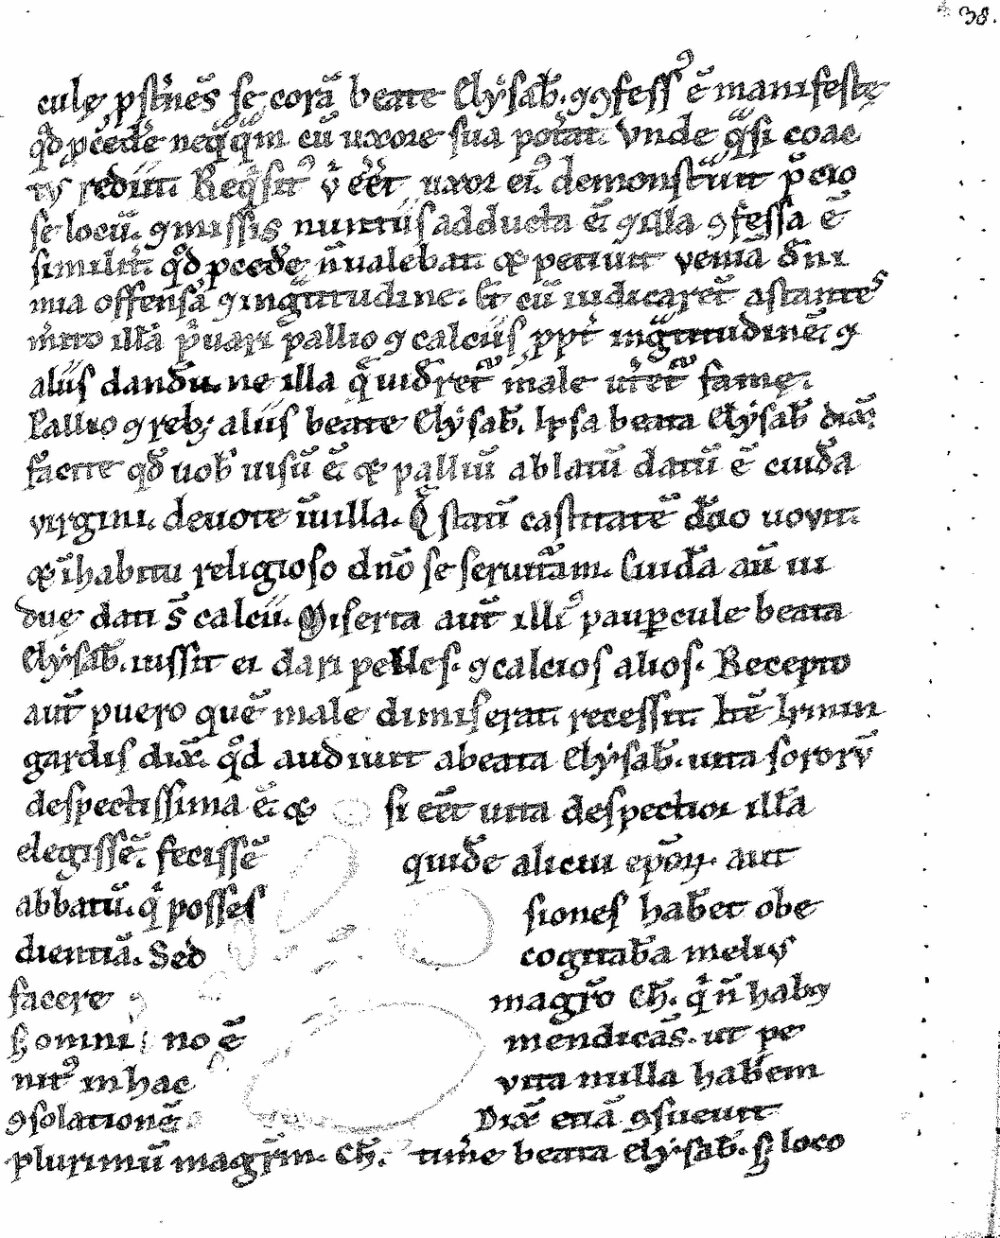 38.
culę pstrnēs se corā beate Elysab̄. ⁊ ꝯfessꝰ ē manifestę
qd̄ pcedē neqq̄m cū uxore sua pot̄at. Vnde q̄si coac
tꝰ rediit. Reqsitꝰ ut̄ uxor eiꝰ. demonst̄uit p̄cio
se locū. ꝯmissis nuntiis adducta ē. ⁊ illa ꝯfessa ē
similit̄. qd̄ pcedē n̄ualebat. & petiuit ueniā d̄ni
mia offensā ⁊ ingtitudine. Et cū iudicaret̄ astanteˢ
m̄ito illā p̄uari pallio ⁊ calciis, ppt̄ ingtitudinē. ⁊
aliis dandū. ne illa q̄ male famę.
Pallio ⁊ reb; aliis beate Elysab̄. Ipsa beata Elysab̄ dix̄.
facite qd̄ uob̄ uisū ē. & palliū ablatū datū ē cuidā
uirgini. deuote īuilla. Q̄ statū castitatē dn̄o uouit.
& īhabitu religioso dn̄o se seruit̄am. Cuidā aū ui
duę dati s̄ calcii. Miserta aut̄ illiꝰ paupcule beata
Elysab̄. iussit ei dari pelles. ⁊ calcios alios. Recepto
aut̄ puero quē male dimiserat. recessit. Itē Irmin
gardis dix̄. qd̄ audiuit abeata Elysab̄. uita sororū
despectissima ē. & si eēt uita despectior illā
elegissē. fecissē quidē alicui ep̄oꝝ. aut
abbatū. q̄ posses siones hab̄et obe
dientiā. Sed cogitab̄a melius
facere magr̄o Ch̄. q̄ n̄ habꝫ
omni no ē mendicās. ut pe
nitꝰ in hac uita nulla hab̄em
ꝯsolationē Dix̄ etiā ꝯsueuit
plurimū magr̄m. Ch̄. tim̄e beata Elysab̄. s loco